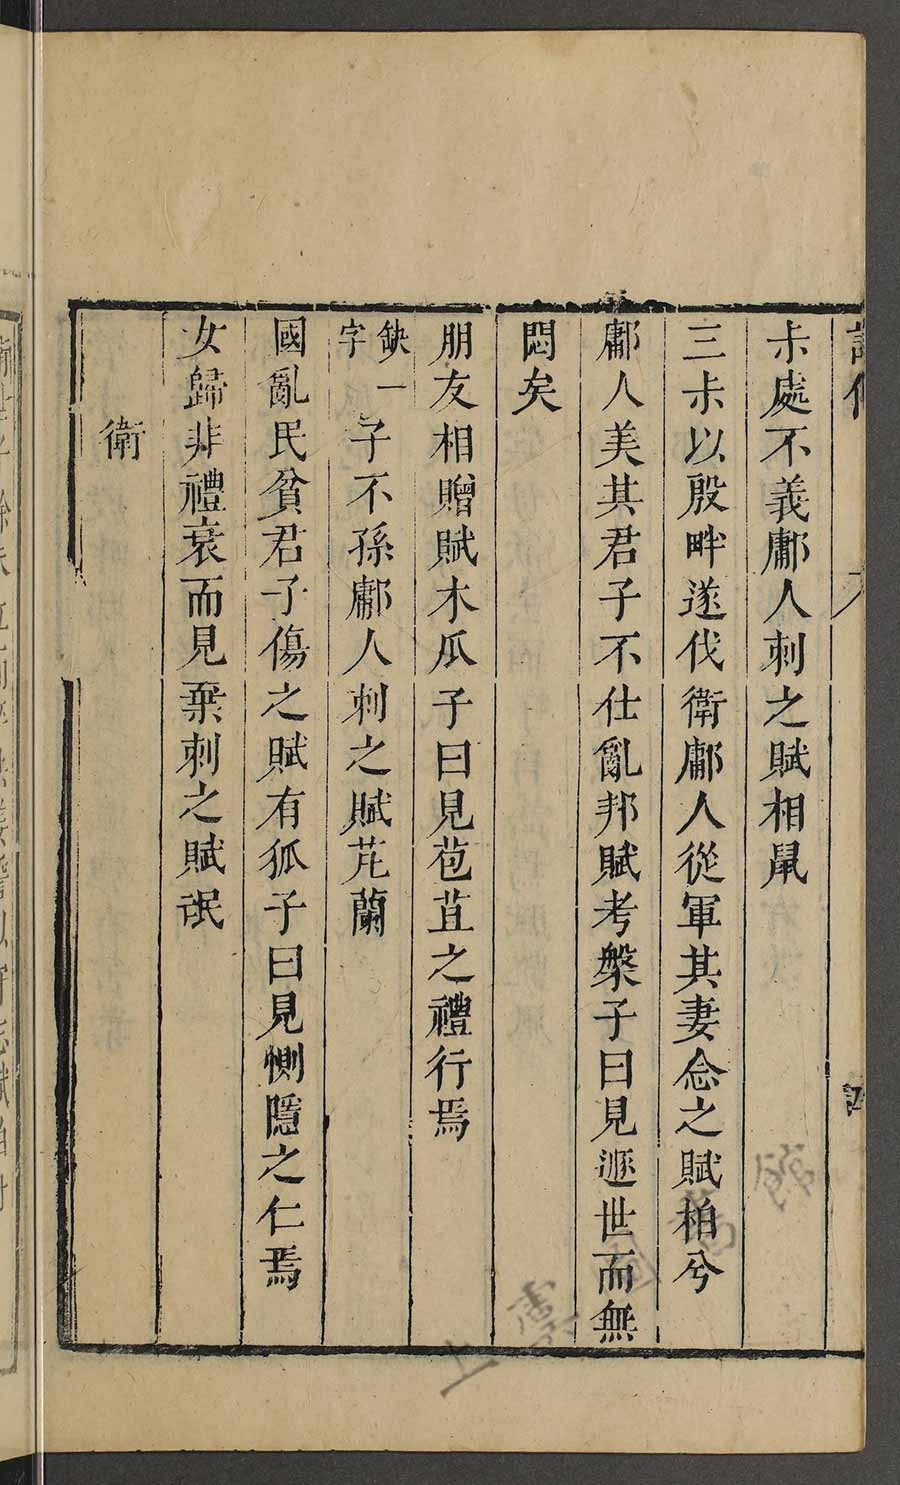 尗處不義鄘人刺之賦相鼠
三尗以殷畔遂伐衛鄘人從軍其妻念之賦柏兮
鄘人美其君子不仕亂邦賦考槃子曰見遯世而無
悶矣
朋友相贈賦木瓜子曰見苞苴之禮行焉
缺一字子不孫鄘人刺之賦芄蘭
國亂民貧君子傷之賦有狐子曰見惻隱之仁焉
女歸非禮衰而見棄刺之賦氓
衛